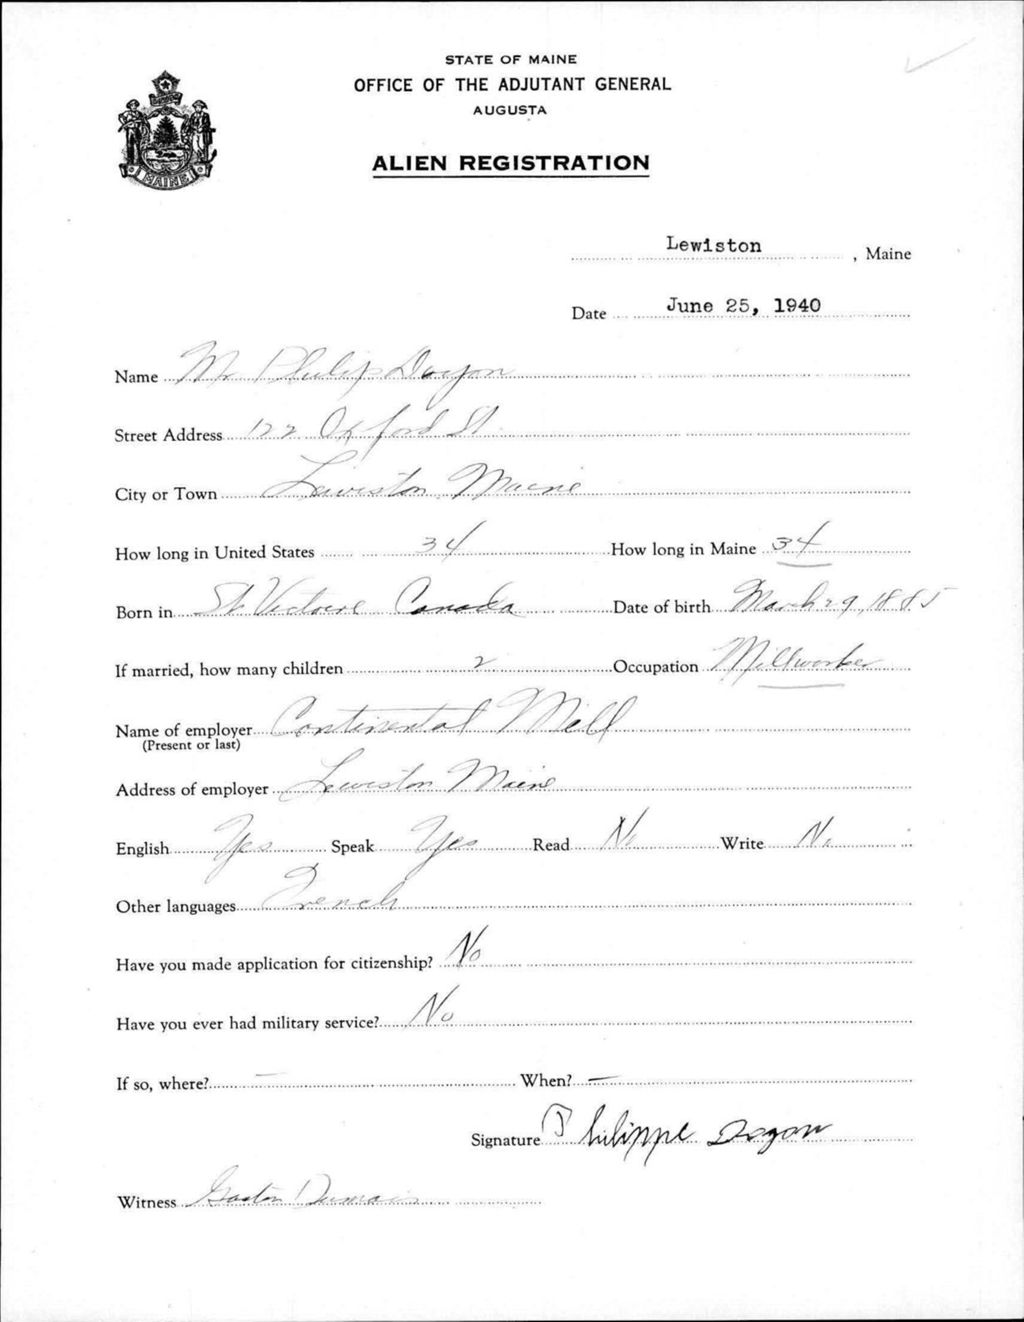 STATE OF MAINE
OFFICE OF THE ADJUTANT GENERAL
AUGUSTA
ALIEN REGISTRATION
MAINE
Lewiston, Maine
Date June 25, 1940
Name Mr Philip Doyon
Street Address 122 Oxford St.
City or Town Lewiston, Maine
How long in United States 34 How long in Maine 34
Born in St. Victoire Canada Date of birth March 29, 1885
If married, how many children 2 Occupation Millworker
Name of employer Continental Mill
(Present or last)
Address of employer Lewiston Maine
English Yes Speak Yes Read No Write No
Other languages French
Have you made application for citizenship? No
Have you ever had military service? No
If so, where? — When? —
Signature Philippe Doyon
Witness Gaston Dumais